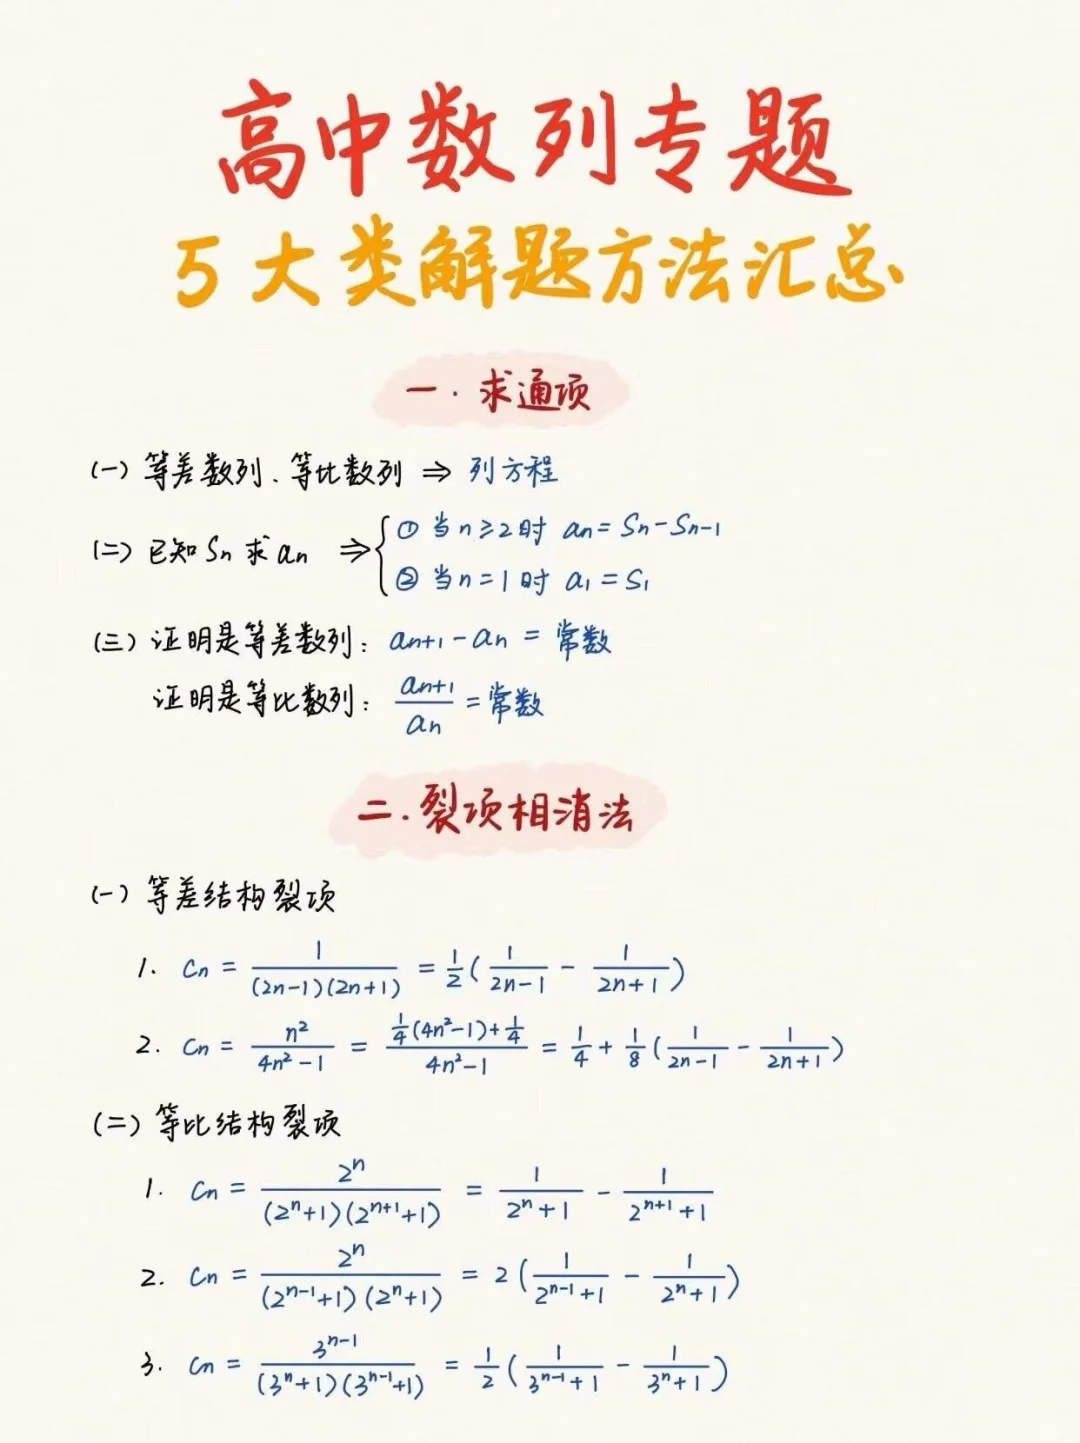 高中数列专题
5大类解题方法汇总
一.求通项
(一) 等差数列、等比数列 ⇒ 列方程
(二) 已知 Sn 求 an ⇒ { ① 当 n≥2 时 an = Sn - Sn-1
② 当 n=1 时 a1 = S1
(三) 证明是等差数列: an+1 - an = 常数
证明是等比数列: an+1/an = 常数
二.裂项相消法
(一) 等差结构裂项
1. Cn = 1/((2n-1)(2n+1)) = 1/2 (1/(2n-1) - 1/(2n+1))
2. Cn = n²/(4n²-1) = (1/4(4n²-1)+1/4)/(4n²-1) = 1/4 + 1/8 (1/(2n-1) - 1/(2n+1))
(二) 等比结构裂项
1. Cn = 2^n/((2^n+1)(2^(n+1)+1)) = 1/(2^n+1) - 1/(2^(n+1)+1)
2. Cn = 2^n/((2^(n-1)+1)(2^n+1)) = 2 (1/(2^(n-1)+1) - 1/(2^n+1))
3. Cn = 3^(n-1)/((3^n+1)(3^(n-1)+1)) = 1/2 (1/(3^(n-1)+1) - 1/(3^n+1))